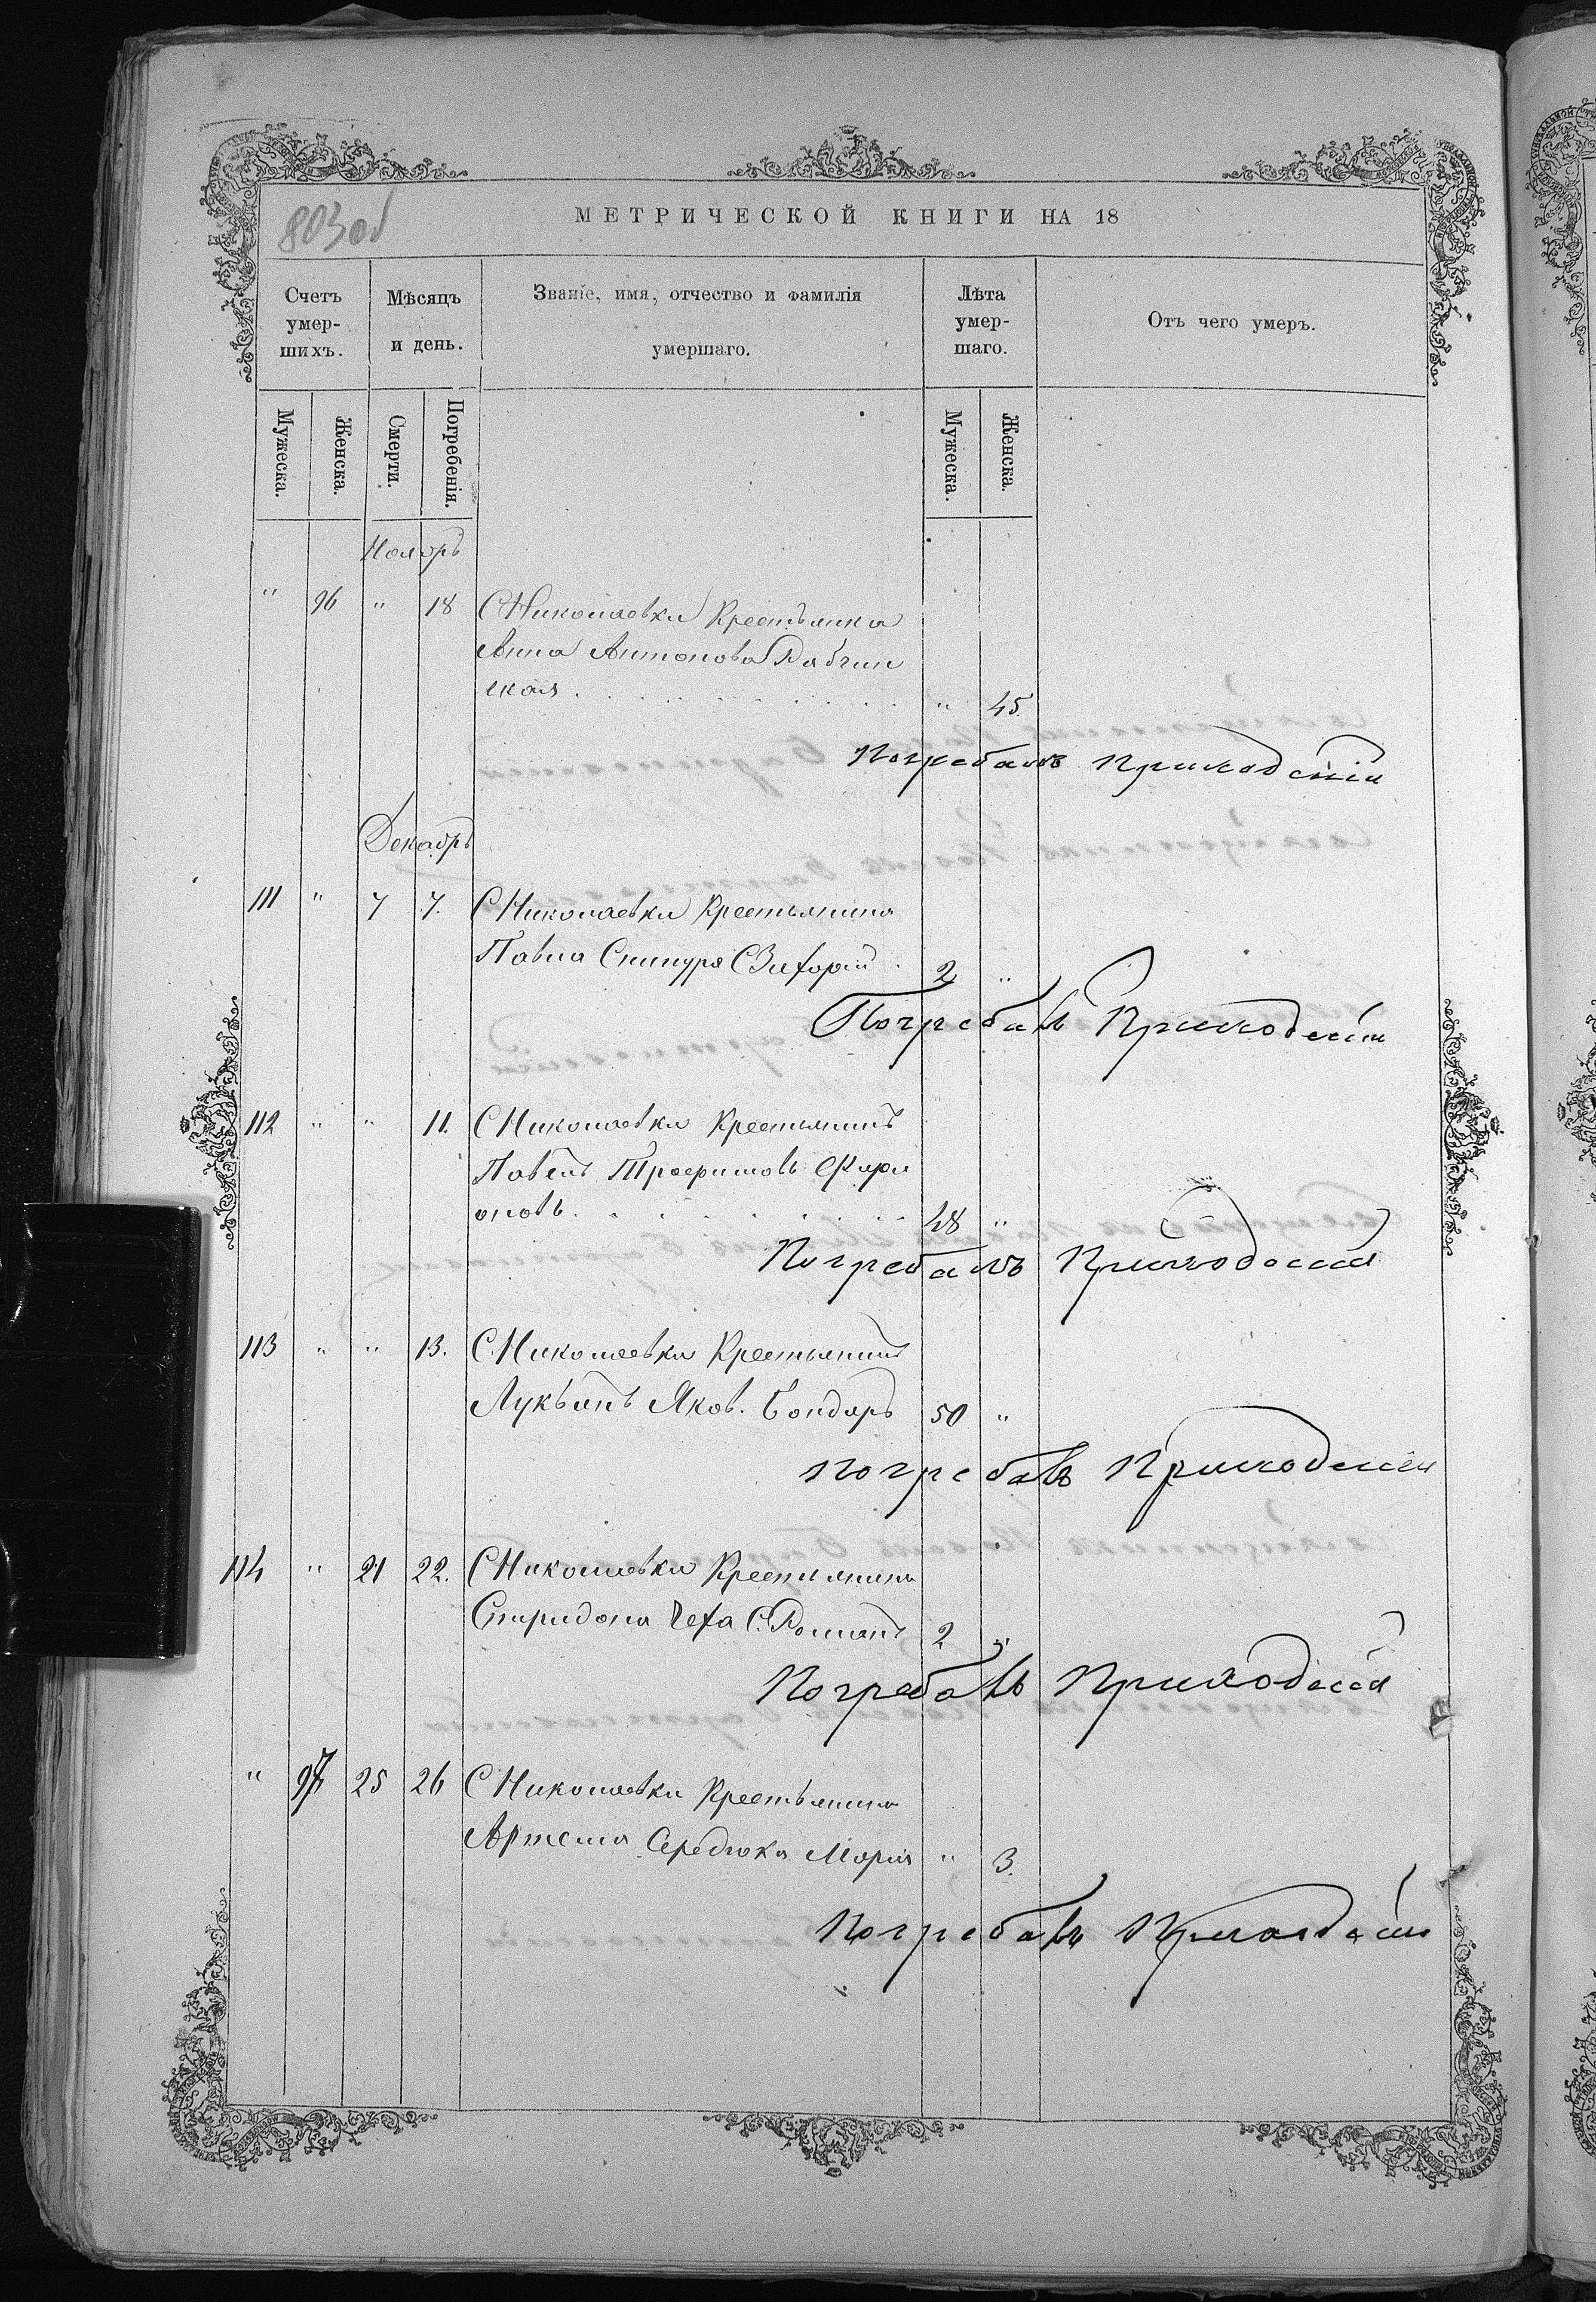 803 об
МЕТРИЧЕСКОЙ КНИГИ НА 18
Счетъ умер-шихъ.
Мѣсяцъ и день.
Званіе, имя, отчество и фамилія умершаго.
Лѣта умер-шаго.
Отъ чего умеръ.
Мужеска.
Женска.
Смерти.
Погребенія.
Мужеска.
Женска.
Ноябрь
" 96 " 18 С Николаевки Крестьянка
Анна Антонова
ская " 45
Погребалъ Приходскій
Декабрь
111 " 7 7. С Николаевки Крестьянина
Павла С 2 "
Погребалъ Приходскій
112 " " 11. С Николаевки Крестьянинъ
Павелъ Трофимовъ
оновъ 48 "
Погребалъ Приходскій
113 " " 13. С. Николаевки Крестьянинъ
Лукьянъ Яков. Бондарь 50 "
Погребалъ Приходскій
114 " 21 22. С Николаевки Крестьянина
Спиридона Чеха С. Романъ 2 "
Погребалъ Приходскій
" 97 25 26 С Николаевки Крестьянина
Артема Середюка Марія " 3.
Погребалъ Приходскій